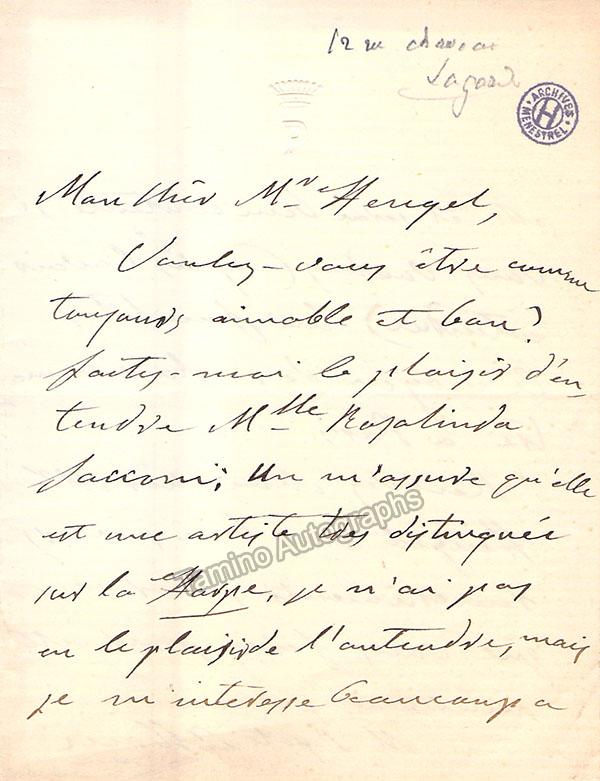 12 rue
ARCHIVES MENESTREL
H
Mon cher Mr Heugel,
Voulez-vous être comme
toujours aimable et bon?
faites-moi le plaisir d'en
tendre Mlle Rosalinda
Sacconi; On m'assure qu'elle
est une artiste très distinguée
sur la Harpe, je n'ai pas
eu le plaisir de l'entendre, mais
je m'interesse beaucoup a
Tamino Autographs